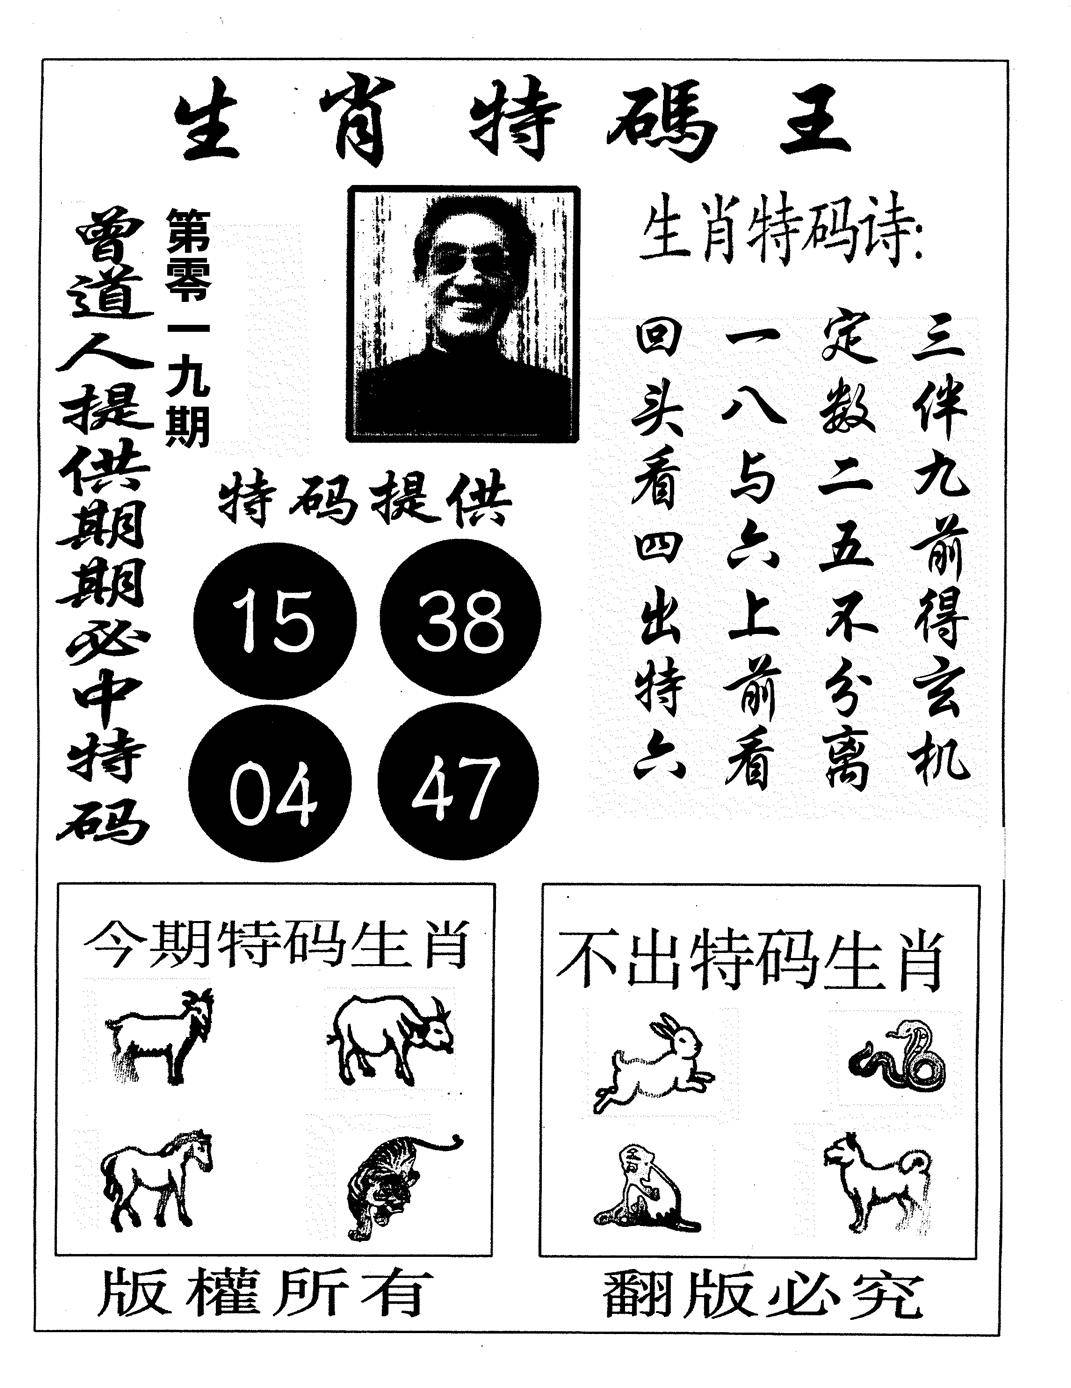 生肖特碼王
曾道人提供期期必中特码
第零一九期
生肖特码诗:
三伴九前得玄机
定数二五不分离
一八与六上前看
回头看四出特六
特码提供
15 38
04 47
今期特码生肖
不出特码生肖
版權所有
翻版必究